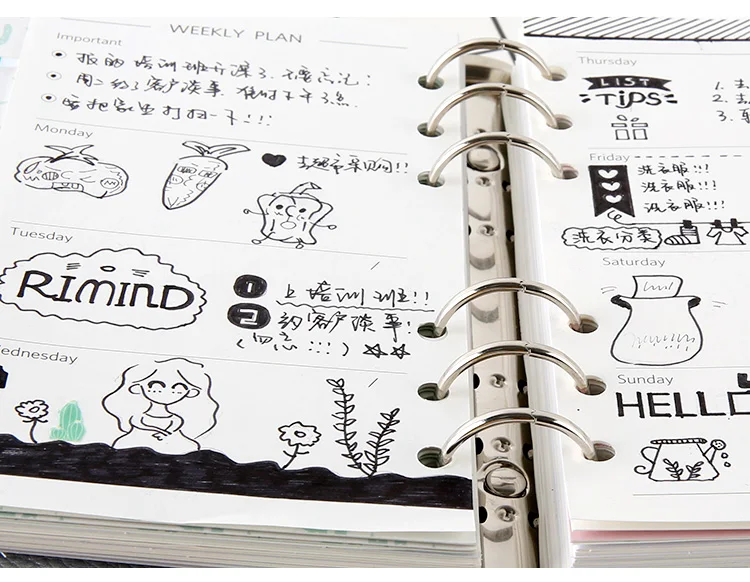 WEEKLY PLAN
Important
报的培训班开课了.不要忘记!
周二约了客户谈事.准时下午3点.
要把家里打扫一下!!!
Monday
去超市采购!!
Tuesday
RIMIND
1 上培训班!!
2 约客户谈事!
(勿忘!!!)
Wednesday
Thursday
LIST
TIPS
1. 去
2. 去
3.
Friday
洗衣服!!!
洗衣服!!!
洗衣服!!!
洗衣分类
Saturday
Sunday
HELLO